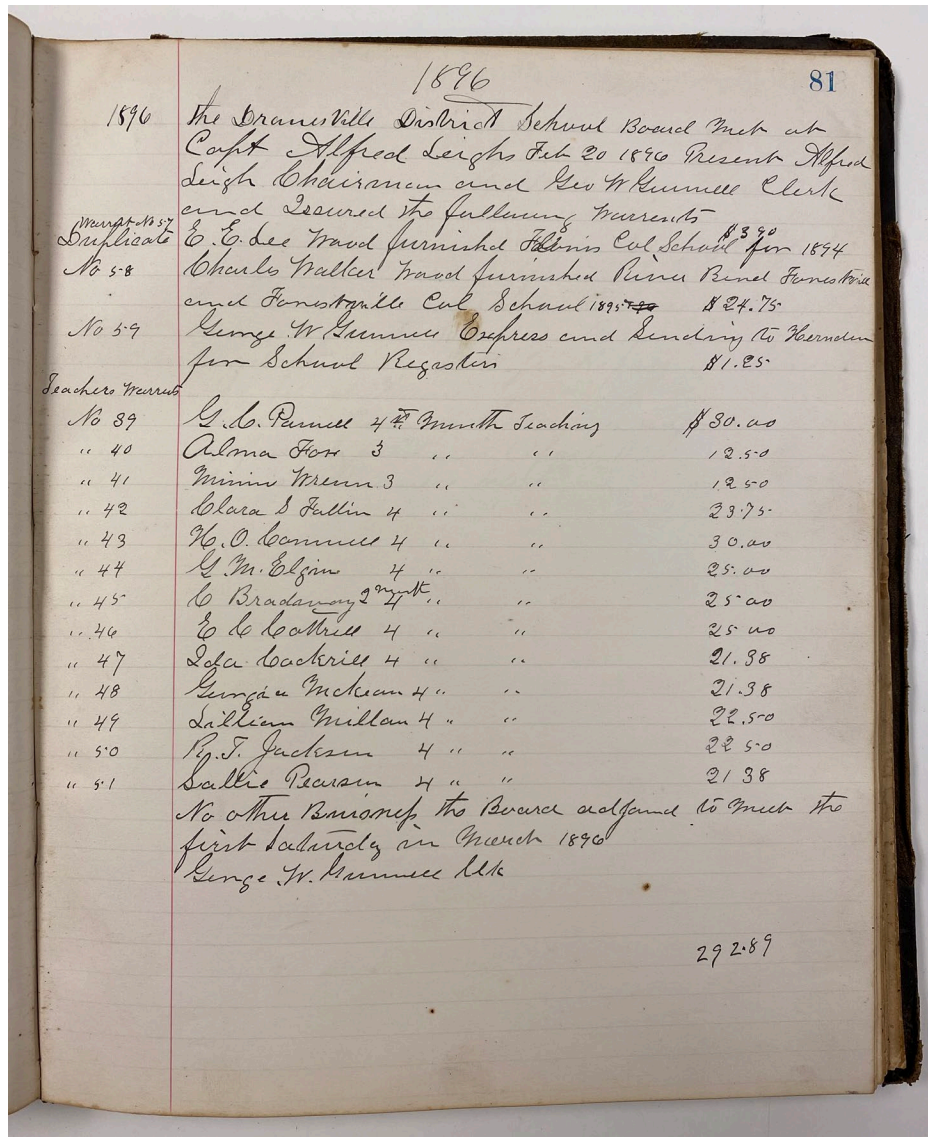 1896
81
1896 the Dranesville District School Board Met at
Capt Alfred Leighs Feb 20 1896 Present Alfred
Leigh Chairman and Geo W Gunnell Clerk
and Issured the following Warrents
Warrent No 57
Duplicate E. E. Lee Wood furnished Col School $3.90 for 1894
No 58 Charles Walker Wood furnished River Bend Forestvill
and Forestville Col School 1895 $24.75
No 59 George W Gunnell Express and Sending to Herndon
for School Registers $1.25
Teachers Warrents
No 39 G. C. Purnell 4th Month Teaching $30.00
" 40 Alma Fox 3 " " 12.50
" 41 Minnie Wrenn 3 " " 12 50
" 42 Clara S Fallin 4 " " 23.75
" 43 H. O. 4 " " 30.00
" 44 G. M. Elgin 4 " " 25.00
" 45 C Bradaway 2 month 4 " " 25.00
" 46 E C Cottrell 4 " " 25 00
" 47 Ida Cockrill 4 " " 21.38
" 48 Georgia Mckean 4 " " 21.38
" 49 Lillian Millan 4 " " 22.50
" 50 R. T. Jackson 4 " " 22 50
" 51 Sallie Pearson 4 " " 21 38
No other Buisness the Board adjound to Meet the
first Saturday in March 1896
George W. Gunnell Clk
292.89